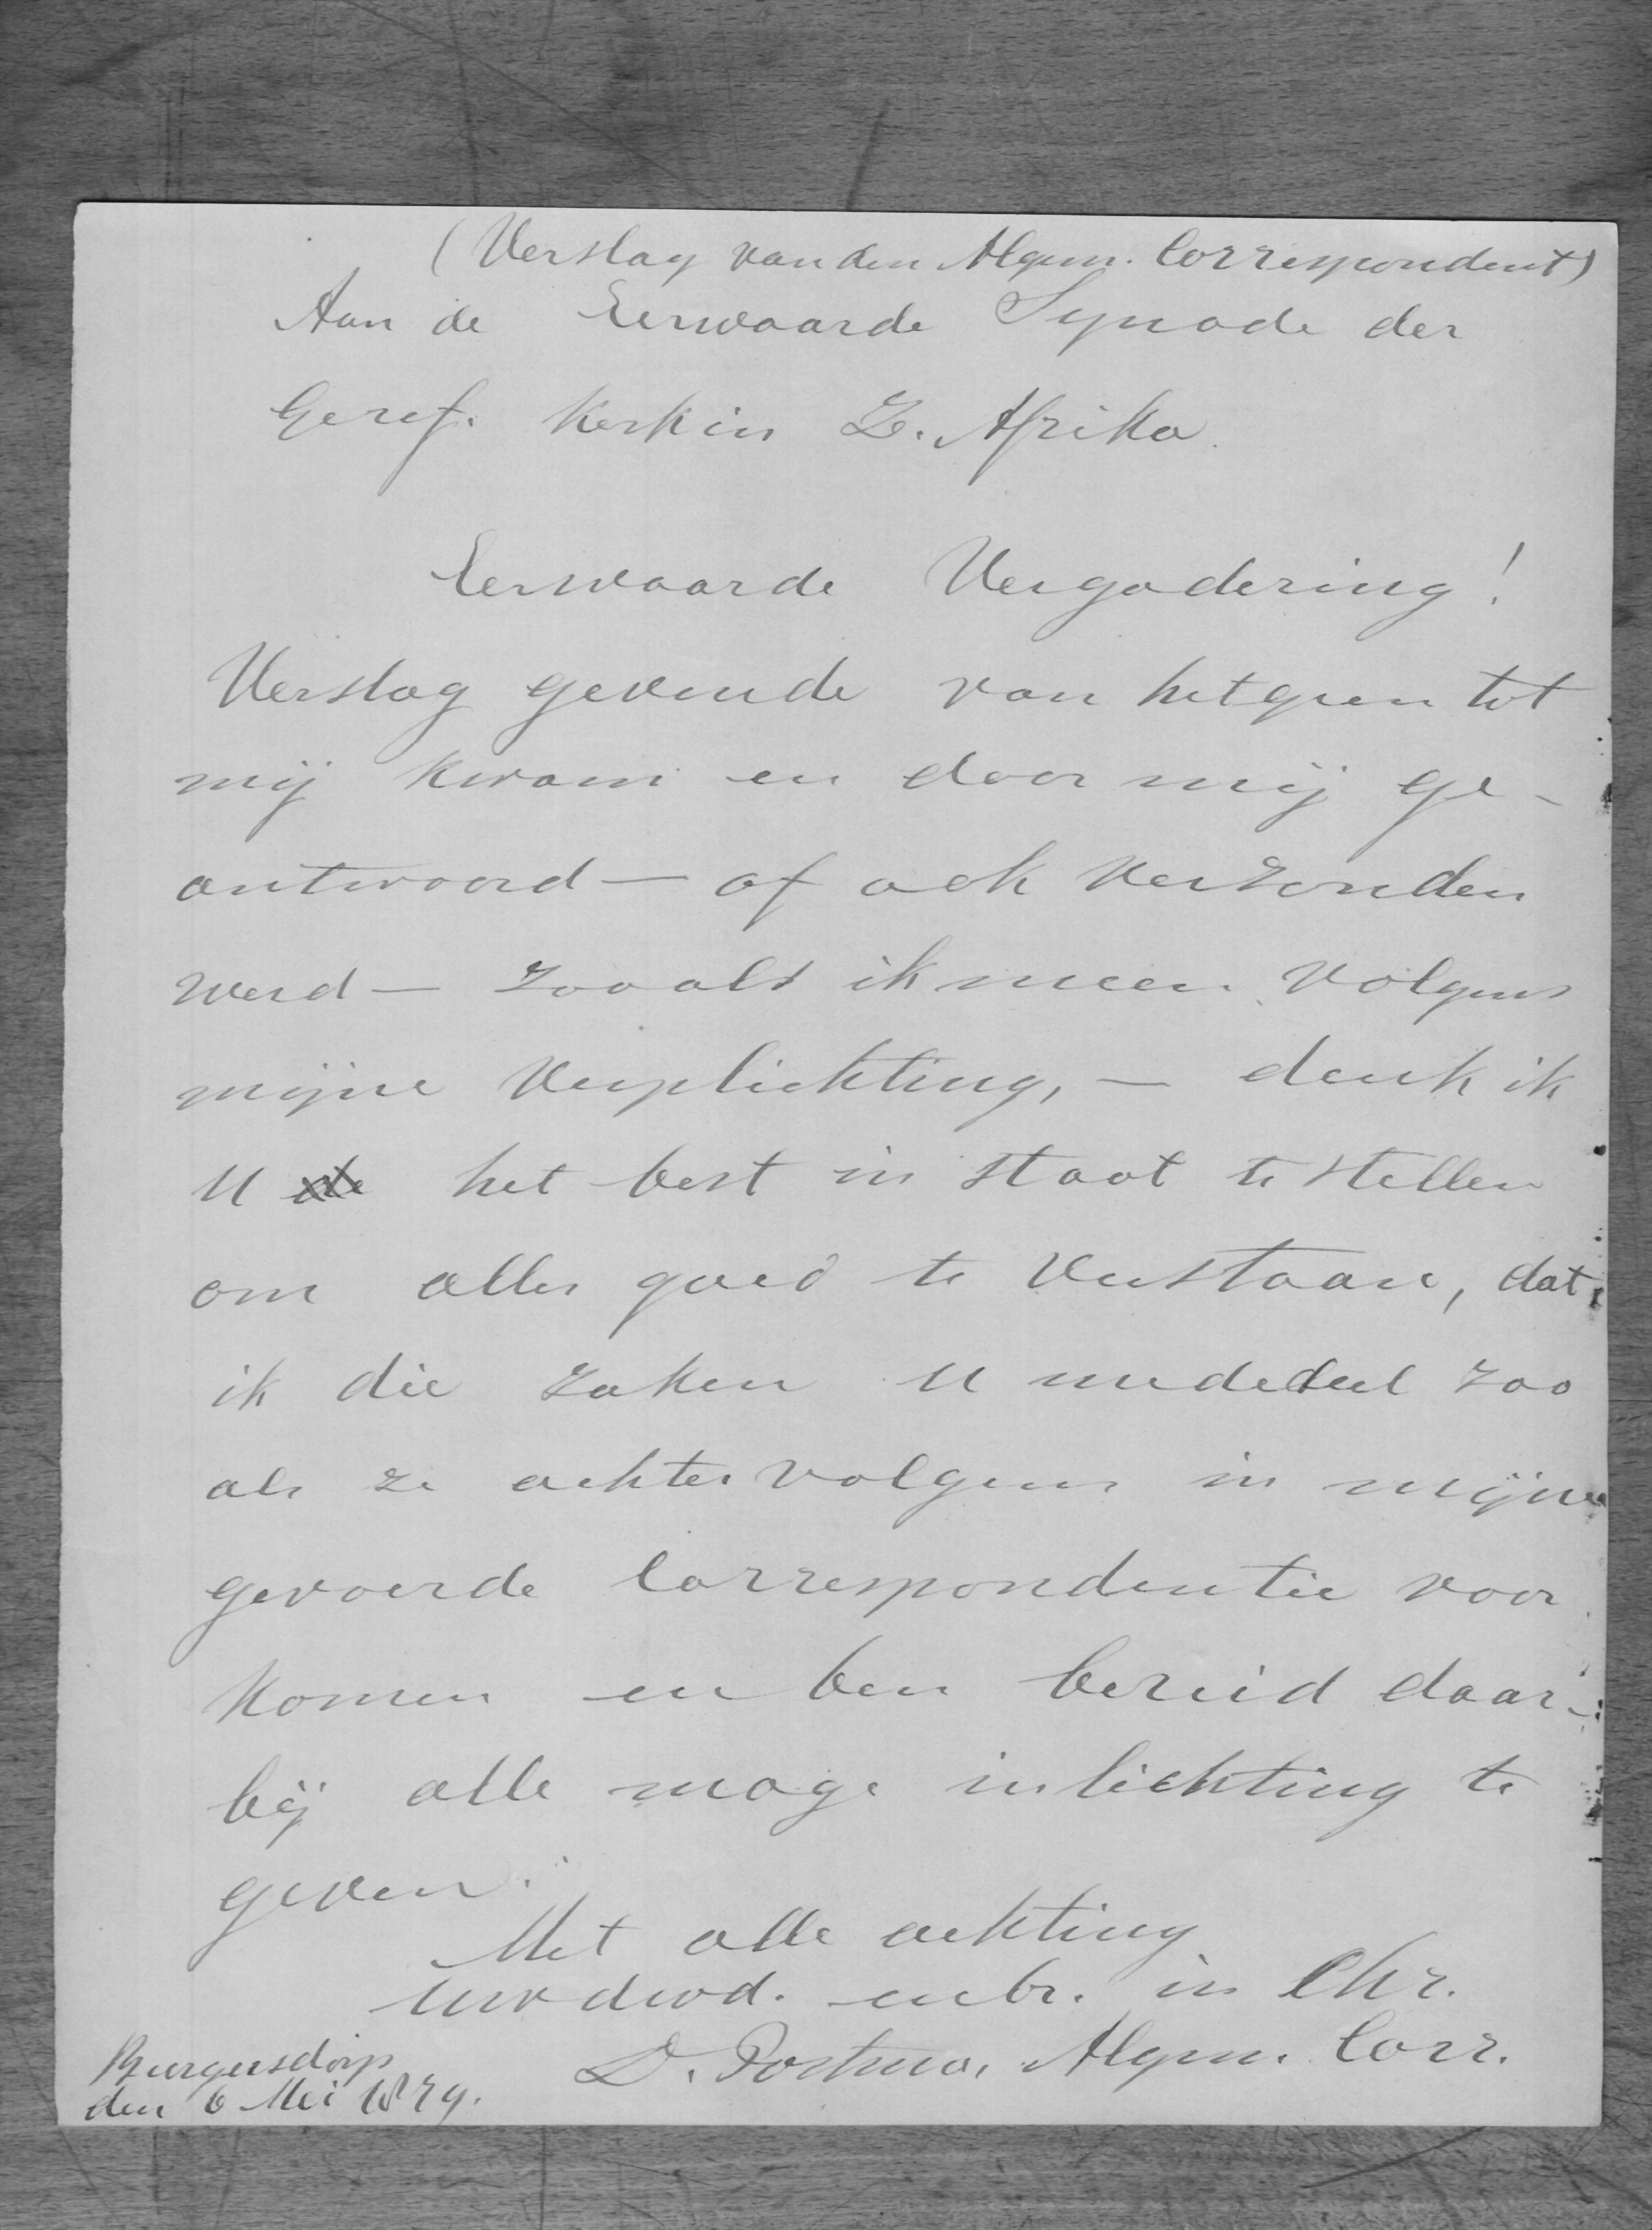 (Verslag van den Algem. Correspondent)
Aan de Eerwaarde Synode der
Geref. Kerk in Z. Afrika
Eerwaarde Vergadering!
Verslag gevende van hetgeen tot
mij kwam en door mij ge-
antwoord — of ook verzonden
werd — zooals ik meen volgens
mijne verplichting, — denk ik
U de het best in staat te stellen
om alles goed te verstaan, dat
ik die zaken U mededeel zoo
als ze achtervolgens in mijne
gevoerde Correspondentie voor
komen en ben bereid daar-
bij alle moge inlichting te
geven.
Met alle achting
Uw dwd. en br. in Chr.
D. Postma, Algem. Corr.
Burgersdorp
den 6 Mei 1879.